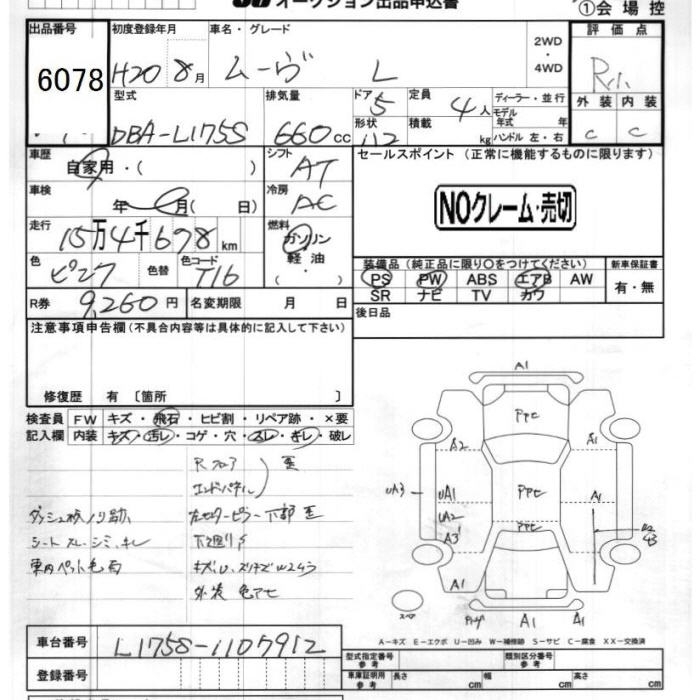 オークション出品申込書
①会場控
出品番号 初度登録年月 車名・グレード 評価点
6078 H20 8月 ムーヴ L 2WD・4WD
型式 排気量 ドア 5 定員 4人 ディーラー・並行 外装 内装
モデル年式 年
DBA-L175S 660cc 形状 積載 kg ハンドル 左・右 C C
車歴 自家用・( ) シフト AT セールスポイント (正常に機能するものに限ります)
車検 年 月( 日) 冷房 AC NOクレーム・売切
走行 15万4千698km 燃料 ガソリン 軽油・
色 ピンク 色替 色コード T16 装備品(純正品に限り○をつけてください) 新車保証書
PS PW ABS エアB AW 有・無
R券 9,260円 名変期限 月 日 SR ナビ TV カワ
注意事項申告欄(不具合内容等は具体的に記入して下さい) 後日品
修復歴 有 〔箇所 〕
検査員 FW キズ・飛石・ヒビ割・リペア跡・×要
記入欄 内装 キズ・汚レ・コゲ・穴・スレ・キレ・破レ
A1
PPC
A2 A1
UA3 UA1 PPC A1
UA2
A3 PPC
A1
A1 A1
Rフロア
エンドパネル 歪
左センターピラー下部歪
シート スレ・シミ・キレ
下廻りサ
外装 色アセ
スペア
A-キズ E-エクボ U-凹み W-補修跡 S-サビ C-腐食 XX-交換済
車台番号 L175S-1107912
型式指定番号 参考 類別区分番号 参考
登録番号 車庫証明用 参考 長さ cm 幅 cm 高さ cm